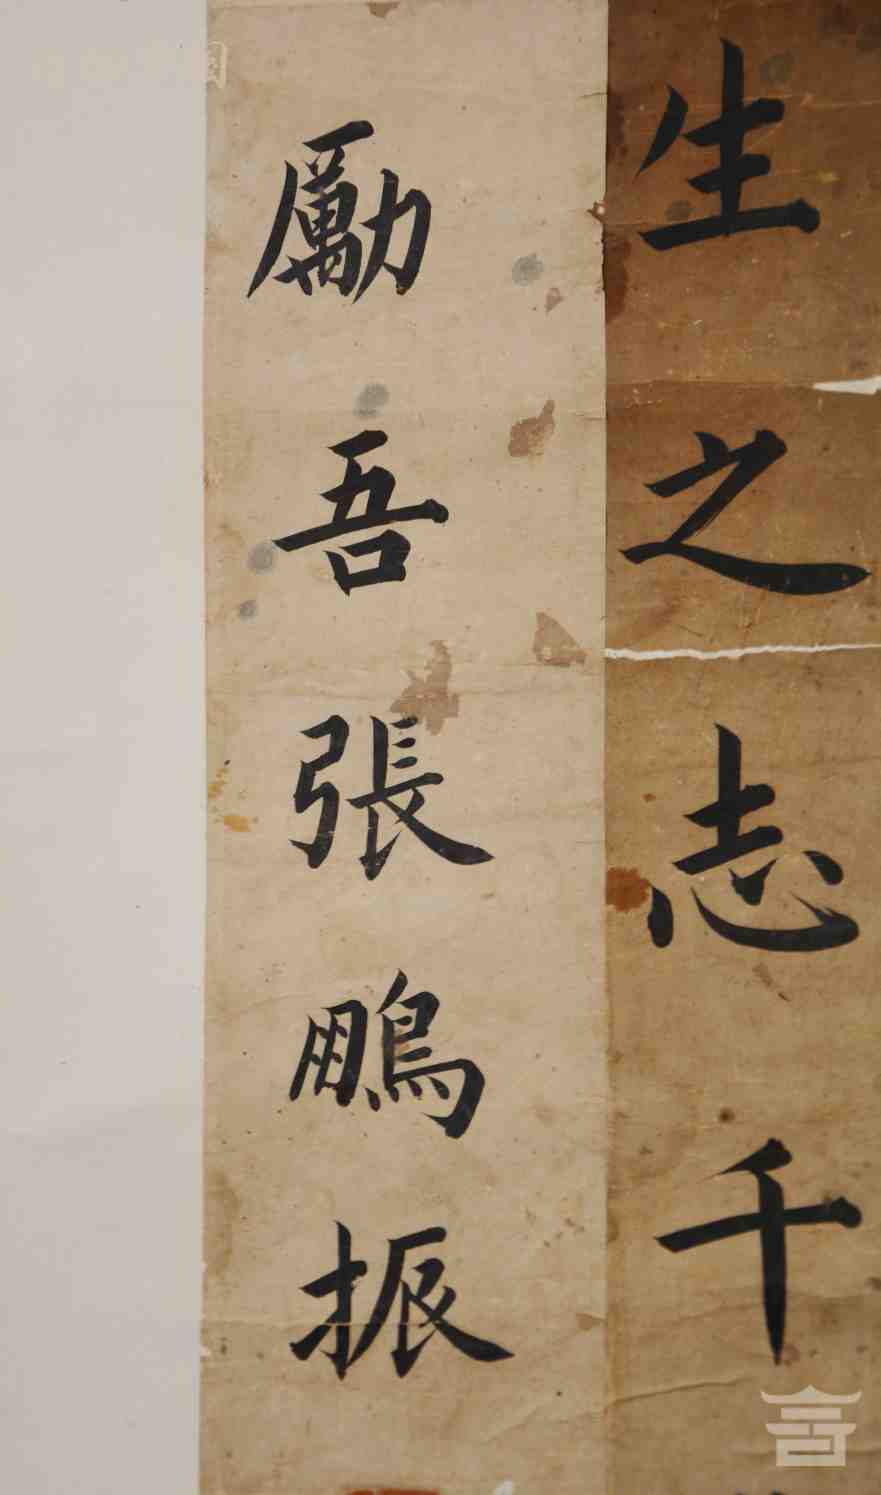 生之志千
勵吾張鵬振